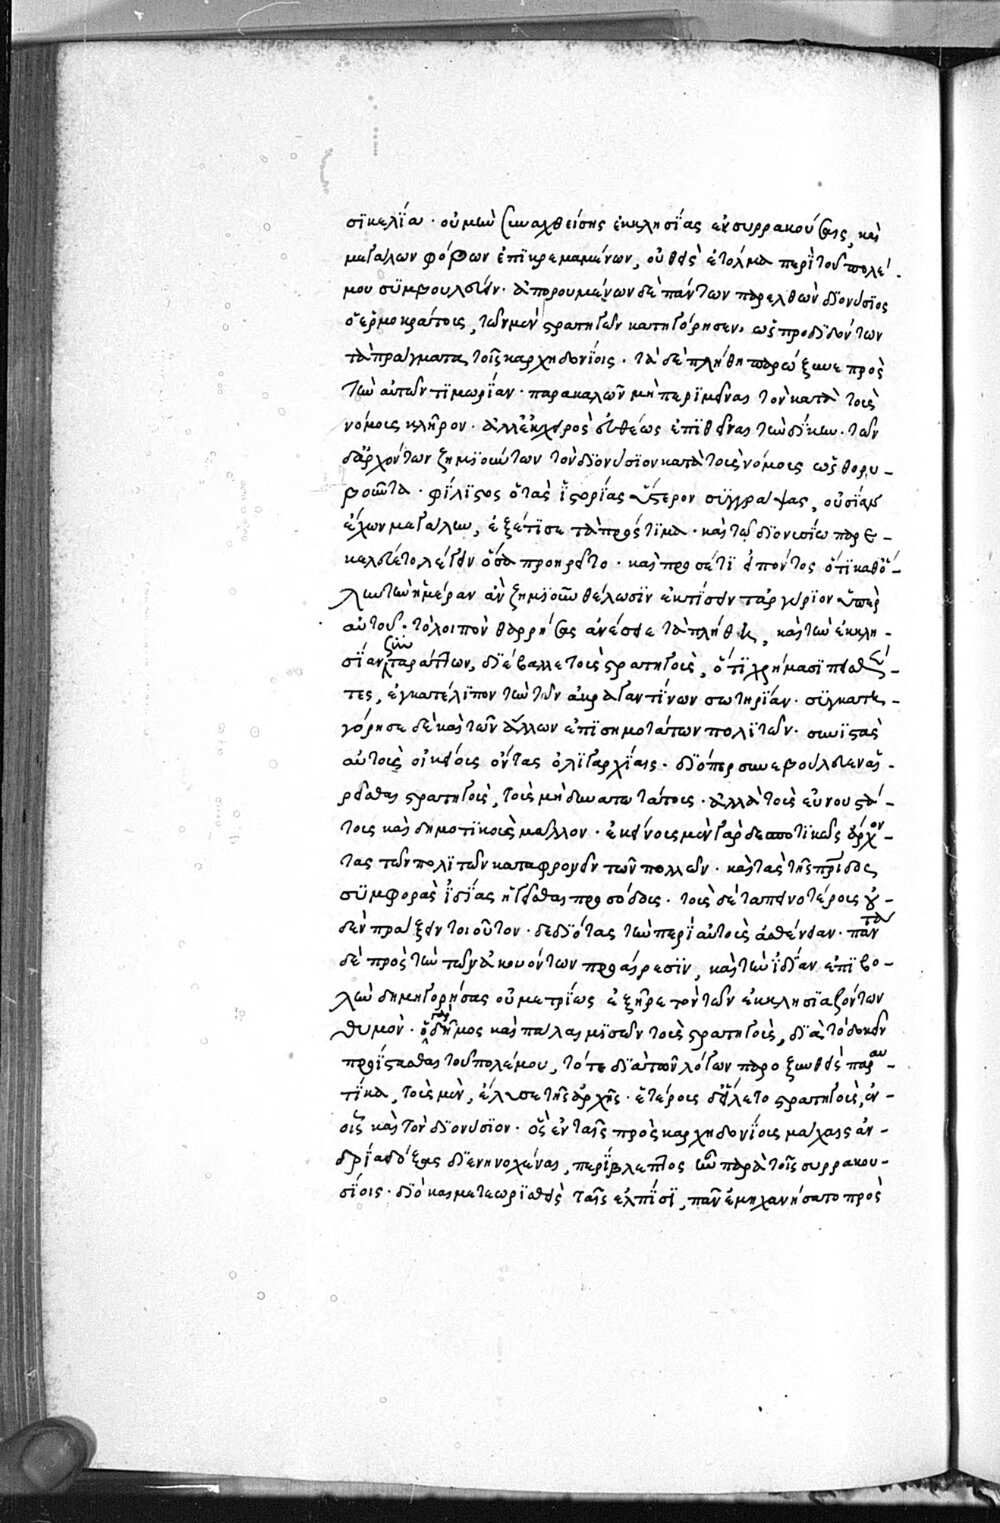 σϊκελία · οὐ μὴν συναχθείσης ἐκκλησΐας ἐν συρρακούσαις, καὶ
μεγάλων φόβων ἐπϊκρεμαμένων, οὐθεὶς ἐτόλμα περὶ τοῦ πολέ-
μου συμβουλεύειν · ἀπορουμένων δὲ πάντων παρελθὼν διονύσϊος
ὁ ἑρμοκράτους, τῶν μὲν στρατηγῶν κατηγόρησεν, ὡς προδϊδόντων
τὰ πράγματα τοῖς καρχηδονίοις · τὰ δὲ πλήθη παρώξυνε πρὸς
τὴν αὐτῶν τϊμωρΐαν · παρακαλῶν μὴ περϊμεῖναι τὸν κατὰ τοὺς
νόμους κλῆρον · ἀλλ' ἐκ χειρὸς εὐθέως ἐπϊθεῖναι τὴν δίκην · τῶν
δ' ἀρχόντων ζημϊούντων τὸν διονύσϊον κατὰ τοὺς νόμους ὡς θορυ-
βοῦντα · φίλϊστος ὁ τὰς ἱστορίας ὕστερον συγγράψας, οὐσίαν
ἔχων μεγάλην, ἐξέτϊσε τὰ πρόστϊμα · καὶ τῷ διονυσίῳ παρε-
κελεύετο λέγειν ὅσα προῄρητο · καὶ προσέτϊ εἰπόντος ὅτϊ καθ' ὅ-
λην τὴν ἡμέραν ἂν ζημϊοῦν θέλωσϊν ἐκτίσειν τἀργύρϊον ὑπὲρ
αὐτοῦ · τὸ λοιπὸν θαρρήσας ἀνέσειε τὰ πλήθη, καὶ τὴν ἐκκλη-
σΐαν συνταράττων, διέβαλλε τοὺς στρατηγοὺς, ὅτϊ χρήμασϊ πεισθέν-
τες, ἐγκατέλιπον τὴν τῶν ἀκραγαντίνων σωτηρΐαν · συγκατη-
γόρησε δὲ καὶ τῶν ἄλλων ἐπϊσημοτάτων πολϊτῶν · συνϊστὰς
αὐτοὺς οἰκείους ὄντας ὀλϊγαρχΐαις · διόπερ συνεβούλευεν αἱ-
ρεῖσθαι στρατηγοὺς, τοὺς μὴ δυνατωτάτους · ἀλλὰ τοὺς εὐνουστά-
τους καὶ δημοτϊκοὺς μᾶλλον · ἐκείνους μὲν γὰρ δεσποτϊκῶς ἄρχον-
τας τῶν πολϊτῶν καταφρονεῖν τῶν πολλῶν · καὶ τὰς τῆς πρΐδος
συμφορὰς ἰδΐας ἡγεῖσθαι προσόδους · τοὺς δὲ ταπεινοτέρους οὐ-
δὲν πράξειν τοιοῦτον · δεδϊότας τὴν περὶ αὐτοὺς ἀσθένειαν · πάντα
δὲ πρὸς τὴν τῶν ἀκουόντων προαίρεσϊν, καὶ τὴν ἰδΐαν ἐπϊβο-
λὴν δημηγορήσας οὐ μετρΐως ἐξῆρε τὸν τῶν ἐκκλησϊαζόντων
θυμόν · ὁ γὰρ δῆμος καὶ πάλαι μϊσῶν τοὺς στρατηγοὺς, διὰ τὸ δοκεῖν
προΐστασθαι τοῦ πολέμου, τότε διὰ τῶν λόγων παροξυνθεὶς παραυ-
τΐκα, τοὺς μὲν, ἔλυσε τῆς ἀρχῆς · ἑτέρους δ' εἵλετο στρατηγοὺς, ἐν
οἷς καὶ τὸν διονύσϊον · ὃς ἐν ταῖς πρὸς καρχηδονΐους μάχαις ἀν-
δρΐᾳ δόξας διενηνοχέναι, περίβλεπτος ἦν παρὰ τοῖς συρρακου-
σΐοις · διὸ καὶ μετεωρϊσθεὶς ταῖς ἐλπΐσϊ, πᾶν ἐμηχανήσατο πρὸς